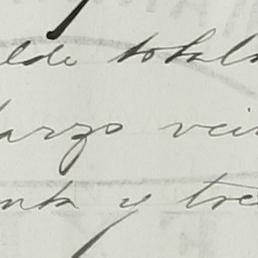 lde total
arzo vei
nta y tre